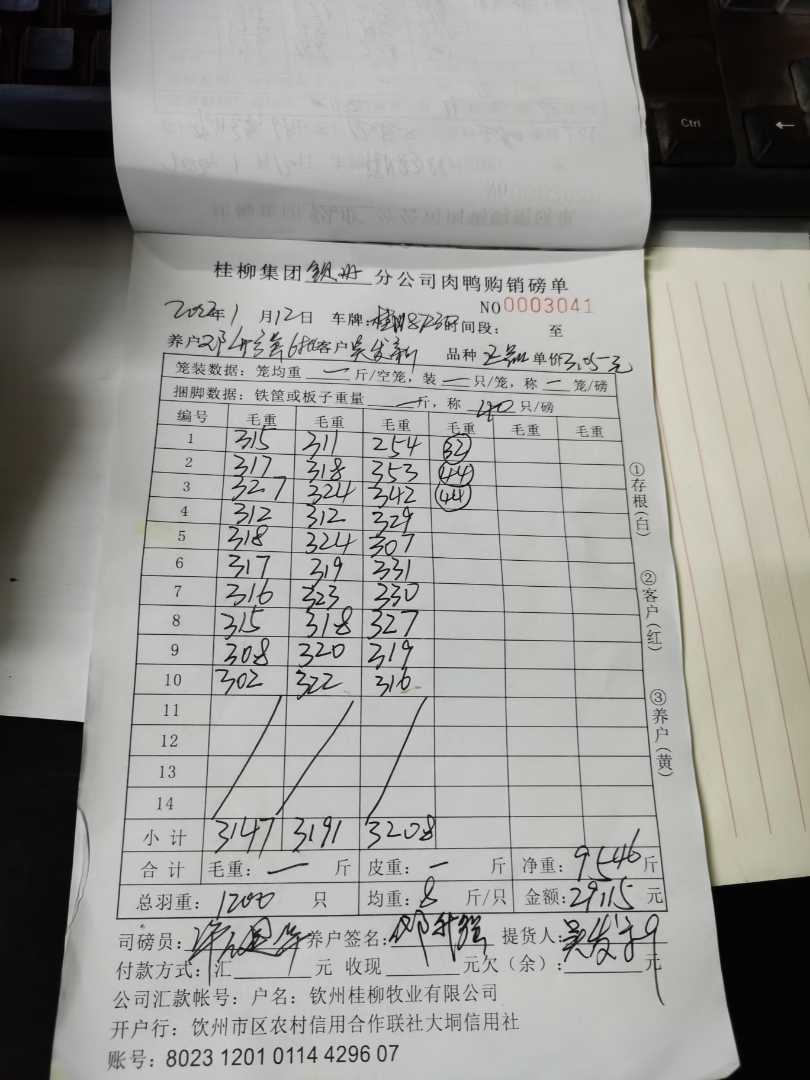 桂柳集团钦州分公司肉鸭购销磅单
NO 0003041
月12日 车牌: 时间段: 至
养户 客户吴发新 品种 正品 单价3.05元
笼装数据: 笼均重 一 斤/空笼, 装 一 只/笼, 称 一 笼/磅
捆脚数据: 铁筐或板子重量 一 斤, 称 40 只/磅
编号 毛重 毛重 毛重 毛重 毛重 毛重
1 315 311 254 32
2 317 318 353 44
3 327 324 342 44
4 312 312 329
5 318 324 307
6 317 319 331
7 316 323 330
8 315 318 327
9 308 320 319
10 302 322 316
11
12
13
14
小计 3147 3191 3208
合计 毛重: 一 斤 皮重: 一 斤 净重: 9546 斤
总羽重: 1200 只 均重: 8 斤/只 金额: 29115 元
司磅员: 养户签名: 提货人: 吴发
付款方式: 汇 元 收现 元欠(余): 元
公司汇款帐号: 户名: 钦州桂柳牧业有限公司
开户行: 钦州市区农村信用合作联社大垌信用社
账号: 8023 1201 0114 4296 07
①存根(白)
②客户(红)
③养户(黄)
Ctrl
←